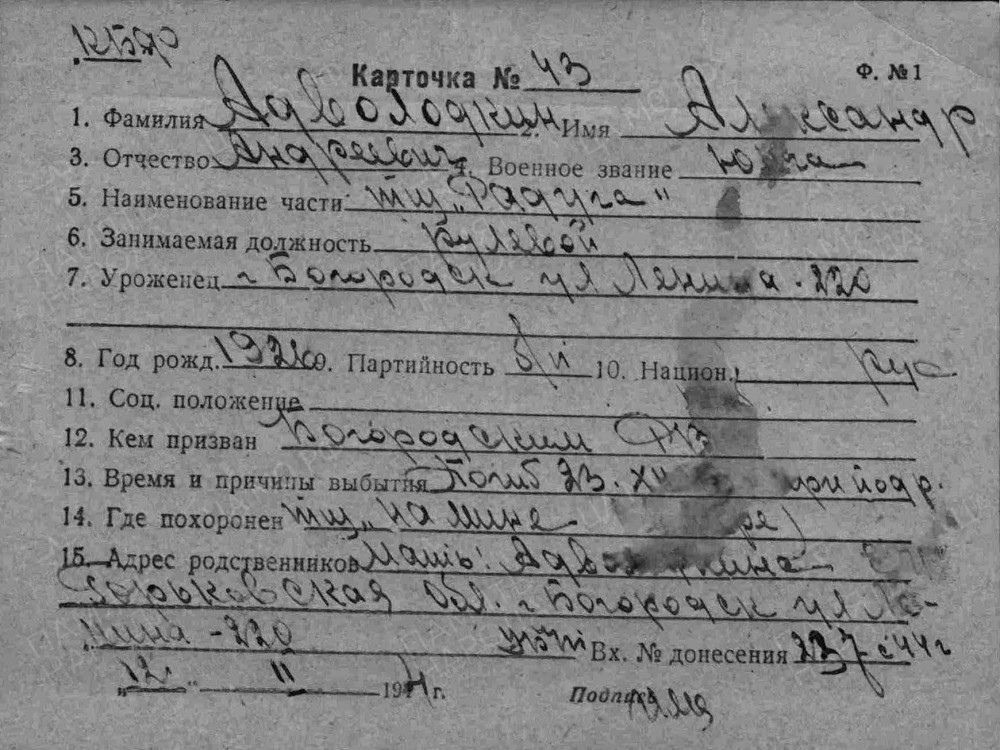 Карточка № 43 Ф. № 1
1. Фамилия Адволодкин 2. Имя Александр
3. Отчество Андреевич 4. Военное звание
5. Наименование части тщ „Радуга"
6. Занимаемая должность Рулевой
7. Уроженец г Богородск ул Ленина - 220
8. Год рожд. 192 9. Партийность б/п 10. Национ. рус
11. Соц. положение
12. Кем призван Богородским
13. Время и причины выбытия Погиб 23. при подр.
14. Где похоронен тщ „ на мине
15. Адрес родственников Мать:
Горьковская обл. г Богородск ул Ле-
нина - 220 Вх. № донесения 237 с 44 г
„12" 11 1944 г. Подпись